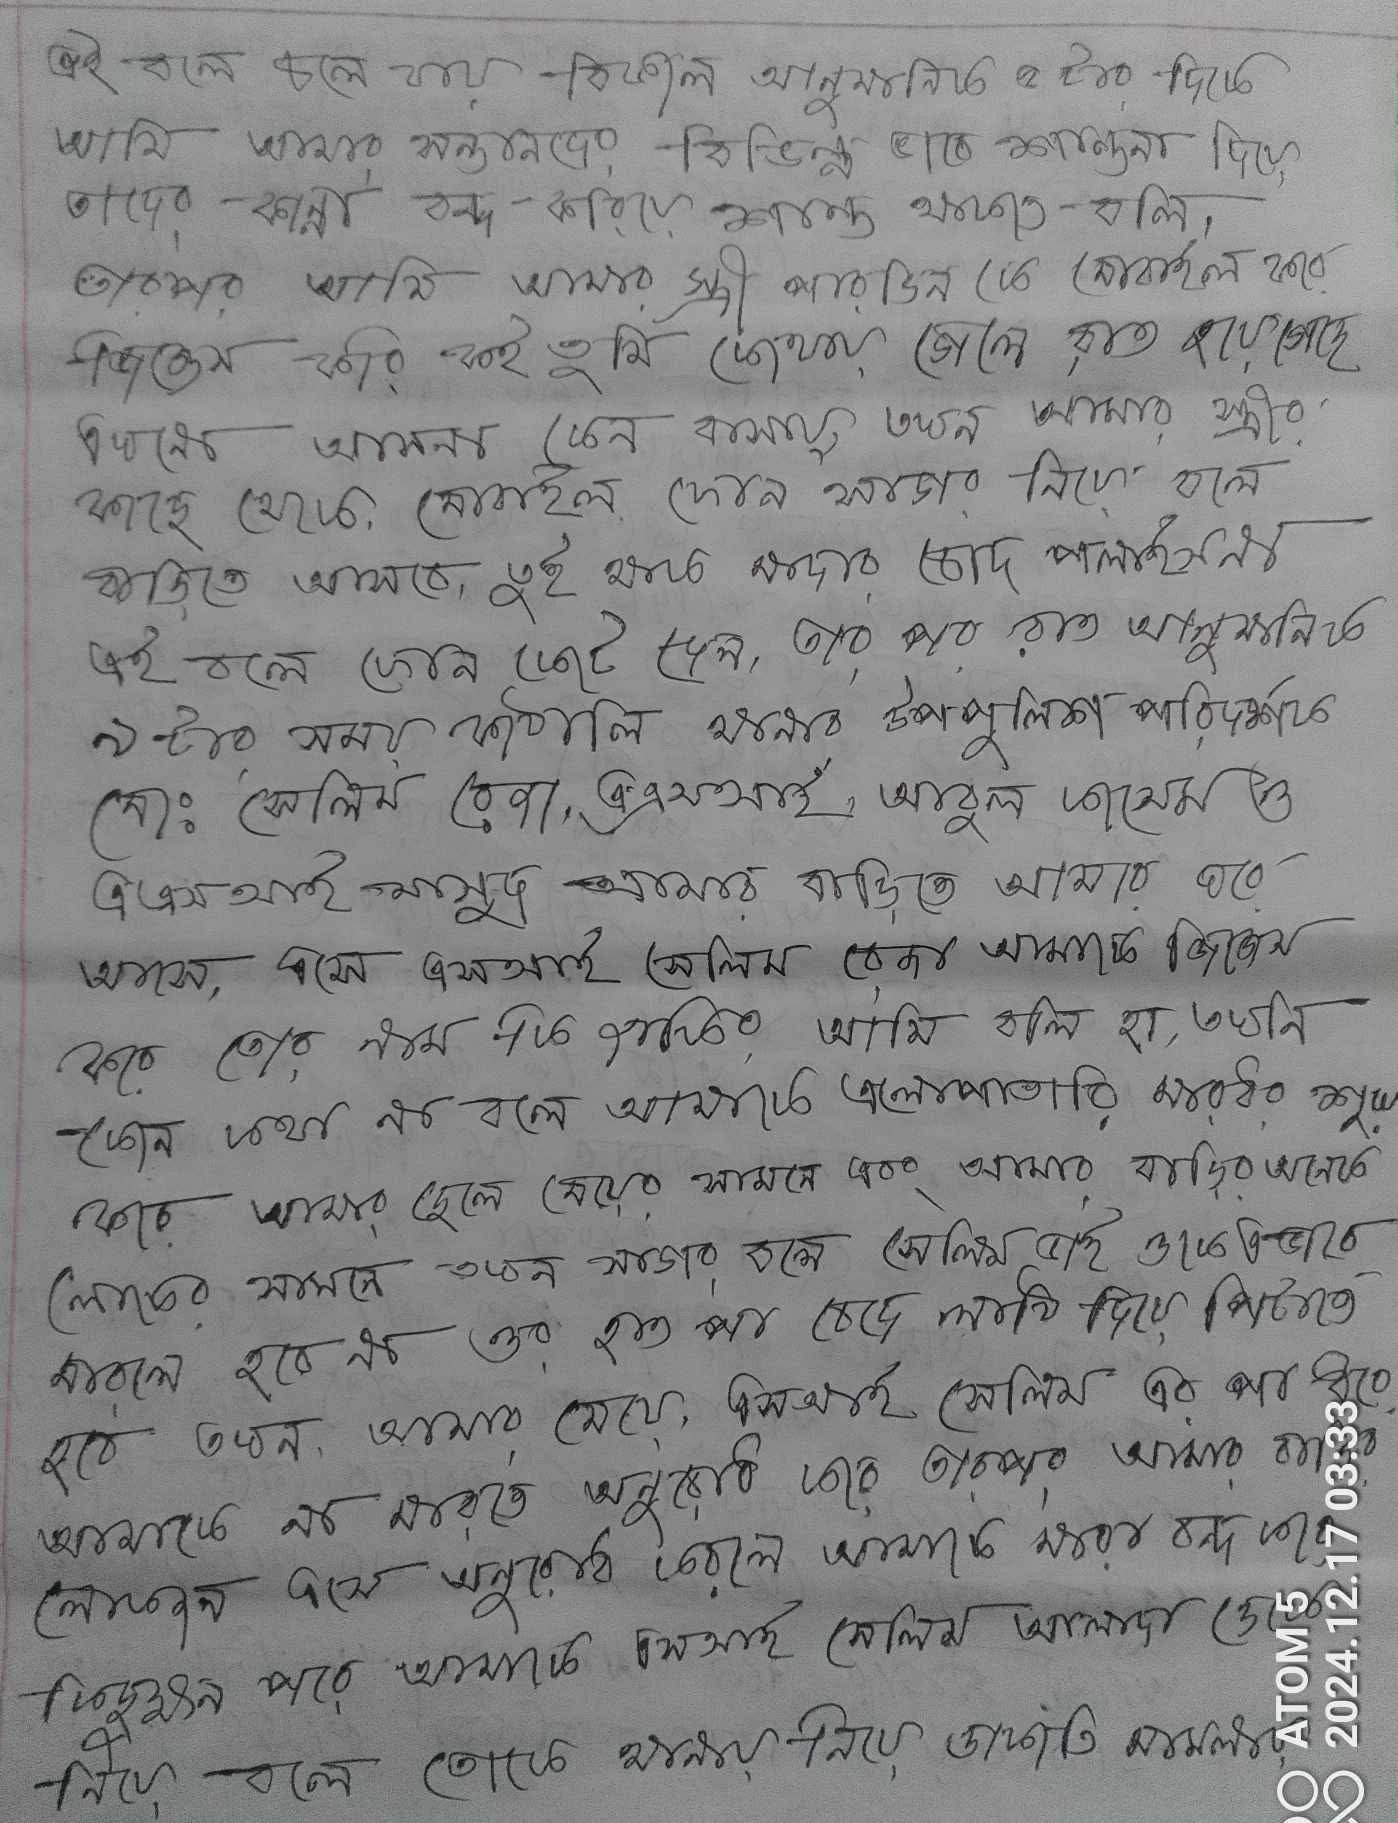 এই বলে চলে যায় বিকাল আনুমানিক ৫ টার দিকে
আমি আমার সন্তানদের বিভিন্ন ভাবে শান্তনা দিয়ে
তাদের কান্না বন্দ করিয়ে শান্ত থাকতে বলি,
তারপর আমি আমার স্ত্রী পারভিন কে মোবাইল করে
জিজ্ঞেস করি কই তুমি কোথায় গেলে রাত হয়ে গেছে
এখনো আসনা কেন বাসায়, তখন আমার স্ত্রীর
কাছে থেকে মোবাইল ফোন সাত্তার নিয়ে বলে
বাড়িতে আসবে, তুই থাক মাদার চোদ পালাইসনা
এই বলে ফোন কেটে দেন, তার পর রাত আনুমানিক
৯ টার সময় কাঠালি থানার উপপুলিশ পরিদর্শক
মোঃ সেলিম রেজা, এএসআই, আবুল কাসেম ও
এএসআই মাসুদ আমার বাড়িতে আমার ঘরে
আসে, এসে এসআই সেলিম রেজা আমাকে জিজ্ঞেস
করে তোর নাম কি আমি বলি হা, তখনি
কোন কথা না বলে আমাকে এলোপাতারি মারধর শুরু
করে আমার ছেলে মেয়ের সামনে এবং আমার বাড়ির অনেক
লোকের সামনে তখন সাত্তার বলে সেলিম ভাই ওকে এভাবে
মারলে হবে না ওর হাত পা বেদে লাঠি দিয়ে পিটাতে
হবে তখন আমার মেয়ে, এসআই সেলিম এর পা ধরে
আমাকে না মারতে অনুরোধ করে তারপর আমার বাড়ির
লোকজন এসে অনুরোধ করলে আমাকে মারা বন্দ করে
কিছুক্ষন পরে আমাকে এসআই সেলিম আলাদা ডেকে
নিয়ে বলে তোকে থানায় নিয়ে ডাকাতি মামলায়
ATOM 5
2024.12.17 03:33